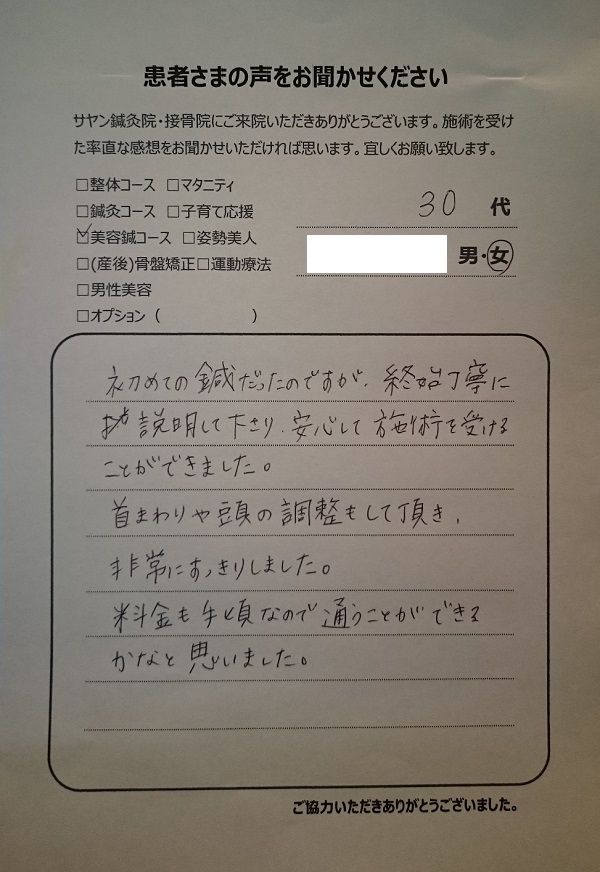 患者さまの声をお聞かせください
サヤン鍼灸院・接骨院にご来院いただきありがとうございます。施術を受け
た率直な感想をお聞かせいただければ思います。宜しくお願い致します。
□整体コース □マタニティ
□鍼灸コース □子育て応援
☑美容鍼コース □姿勢美人
□(産後)骨盤矯正□運動療法
□男性美容
□オプション ( )
30 代
男・女
初めての鍼だったのですが、終始丁寧に
説明して下さり、安心して施術を受ける
ことができました。
首まわりや頭の調整もして頂き、
非常にすっきりしました。
料金も手頃なので通うことができる
かなと思いました。
ご協力いただきありがとうございました。